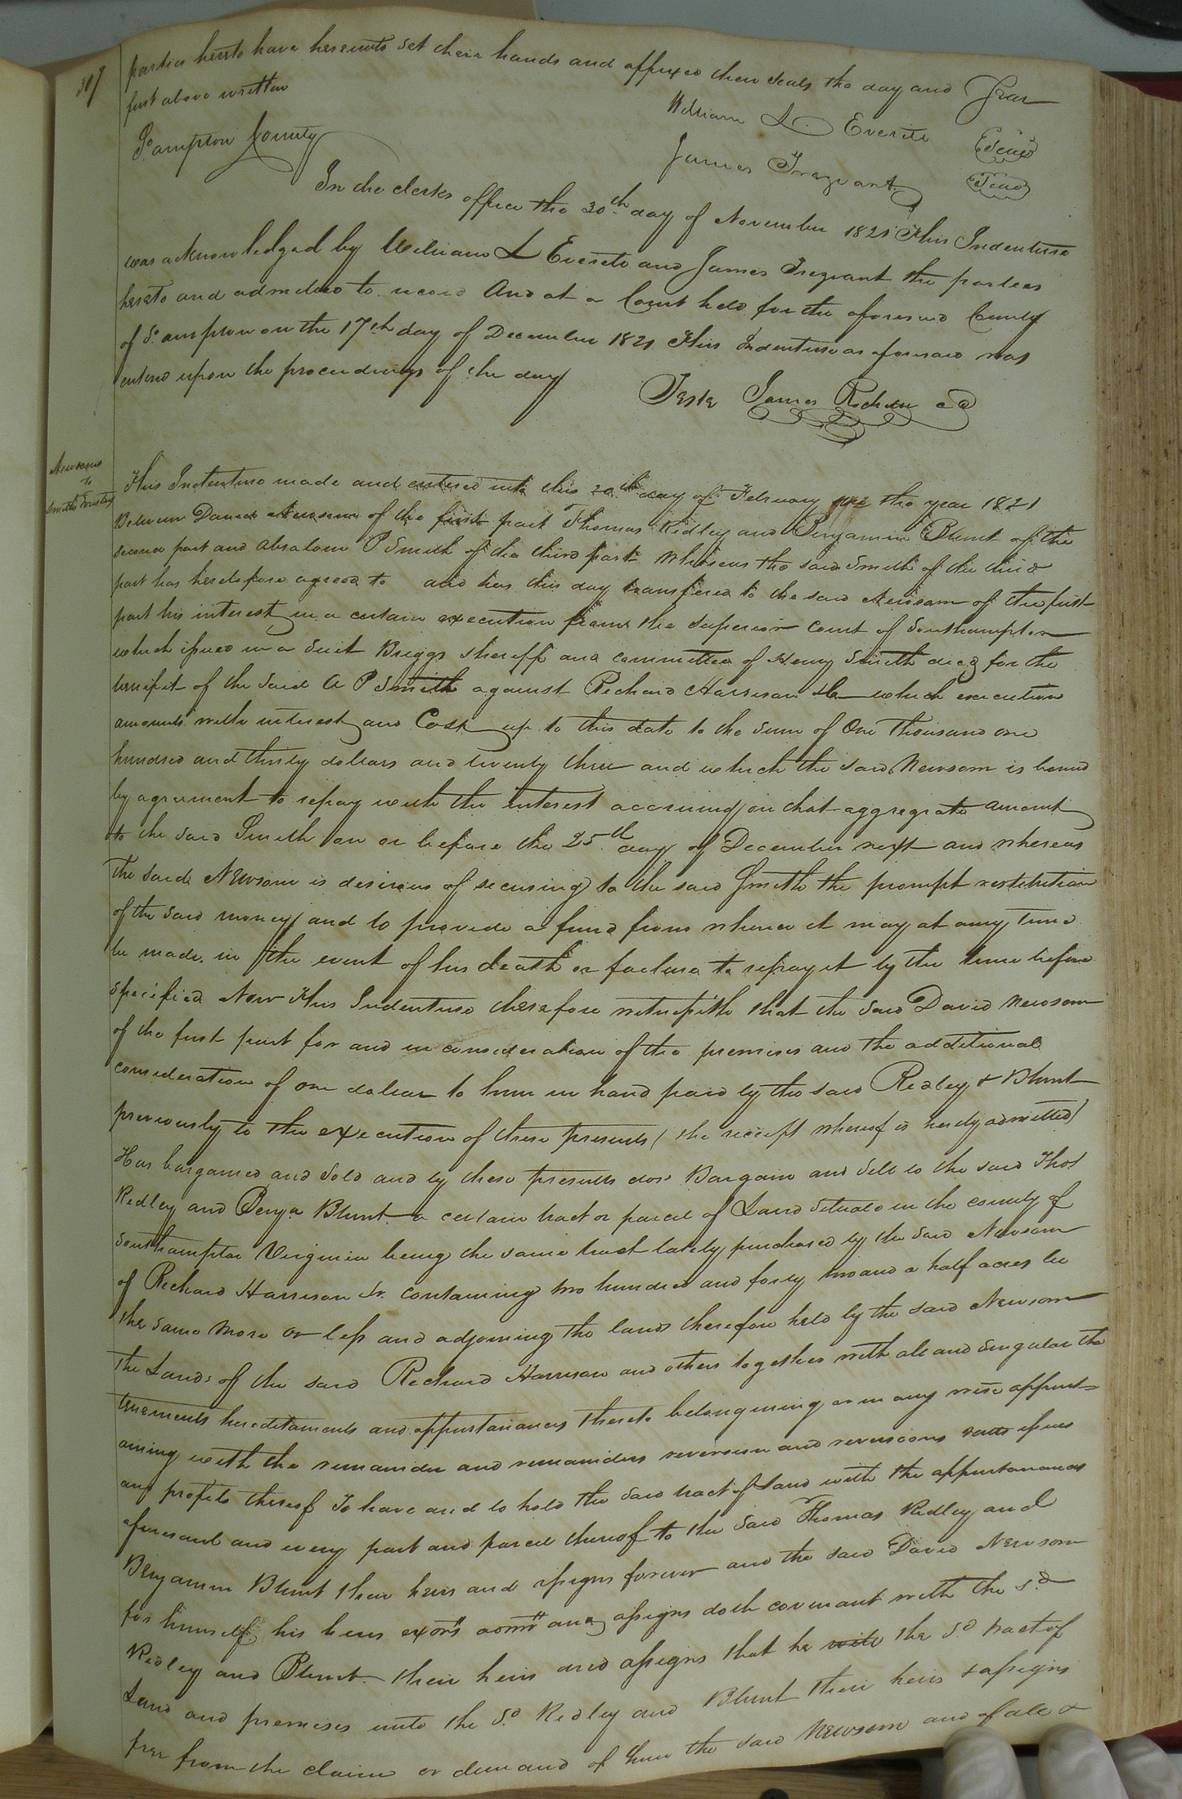 307
parties hereto have hereunto set their hands and affixed their seals the day and year
first above written
William L. Everett {Seal}
Sampton County
James Trezvant {Seal}
In the clerks office the 30th day of November 1821 This Indenture
was acknowledged by William L Everett and James Trezvant the parties
hereto and admitted to record And at a Court held for the aforesaid County
of Sampton on the 17th day of December 1821 This Indenture as aforesaid was
entered upon the proceedings of the day
Teste James Rochelle
Newsom
to
Smiths Trustees
This Indenture made and entered into this 20th day of February the year 1821
Between David Newsom of the first part Thomas Ridley and Benjamin Blunt of the
second part and Absalom P Smith of the third part Whereas the said Smith of the third
part has heretofore agreed to and has this day transfered to the said Newsom of the first
part his interest in a certain execution from the Superior Court of Southampton
which issued in a Suit Briggs Sheriff and committee of Henry Smith decd for the
benifit of the said A P Smith against Richard Harrison which execution
amounts with interest and Cost up to this date to the Sum of One Thousand one
hundred and thirty dollars and twenty three and which the said Newsom is bound
by agreement to repay with the interest accruing on that aggregate amount
to the said Smith on or before the 25th day of December next and whereas
The said Newsom is desirous of securing to the said Smith the prompt restitution
of the said money and to provide a fund from whence it may at any time
be made in the event of his death or failure to repay it by the time before
specified Now This Indenture therefore witnesseth that the said David Newsom
of the first part for and in consideration of the premises and the additional
consideration of one dollar to him in hand paid by the said Ridley & Blunt
previously to the execution of these presents (the receipt whereof is hereby admitted)
Has bargained and sold and by these presents does Bargain and Sell to the said Thos
Ridley and Benja Blunt a certain tract or parcel of Land Situate in the county of
Southampton Virginia being the same tract lately purchased by the said Newsom
of Richard Harrison Sr. containing two hundred and forty two and a half acres be
the same more or less and adjoining the lands therefore held by the said Newsom
The Lands of the said Richard Harrison and others together with all and singular the
tenements hereditaments and appurtanances thereto belonguing or in any wise appurt-
aining with the remainder and remainders reversion and reversions issues
and profits thereof To have and to hold the said tract of Land with the appurtanances
aforesaid and every part and parcel thereof to the said Thomas Ridley and
Benjamin Blunt their heirs and assigns forever and the said David Newsom
for himself his heirs exors admrs and assigns doth covenant with the sd
Ridley and Blunt their heirs and assigns that he will the sd tract of
Land and premises unto the sd Ridley and Blunt their heirs & assigns
free from the claim or demand of him the said Newsom and of all &